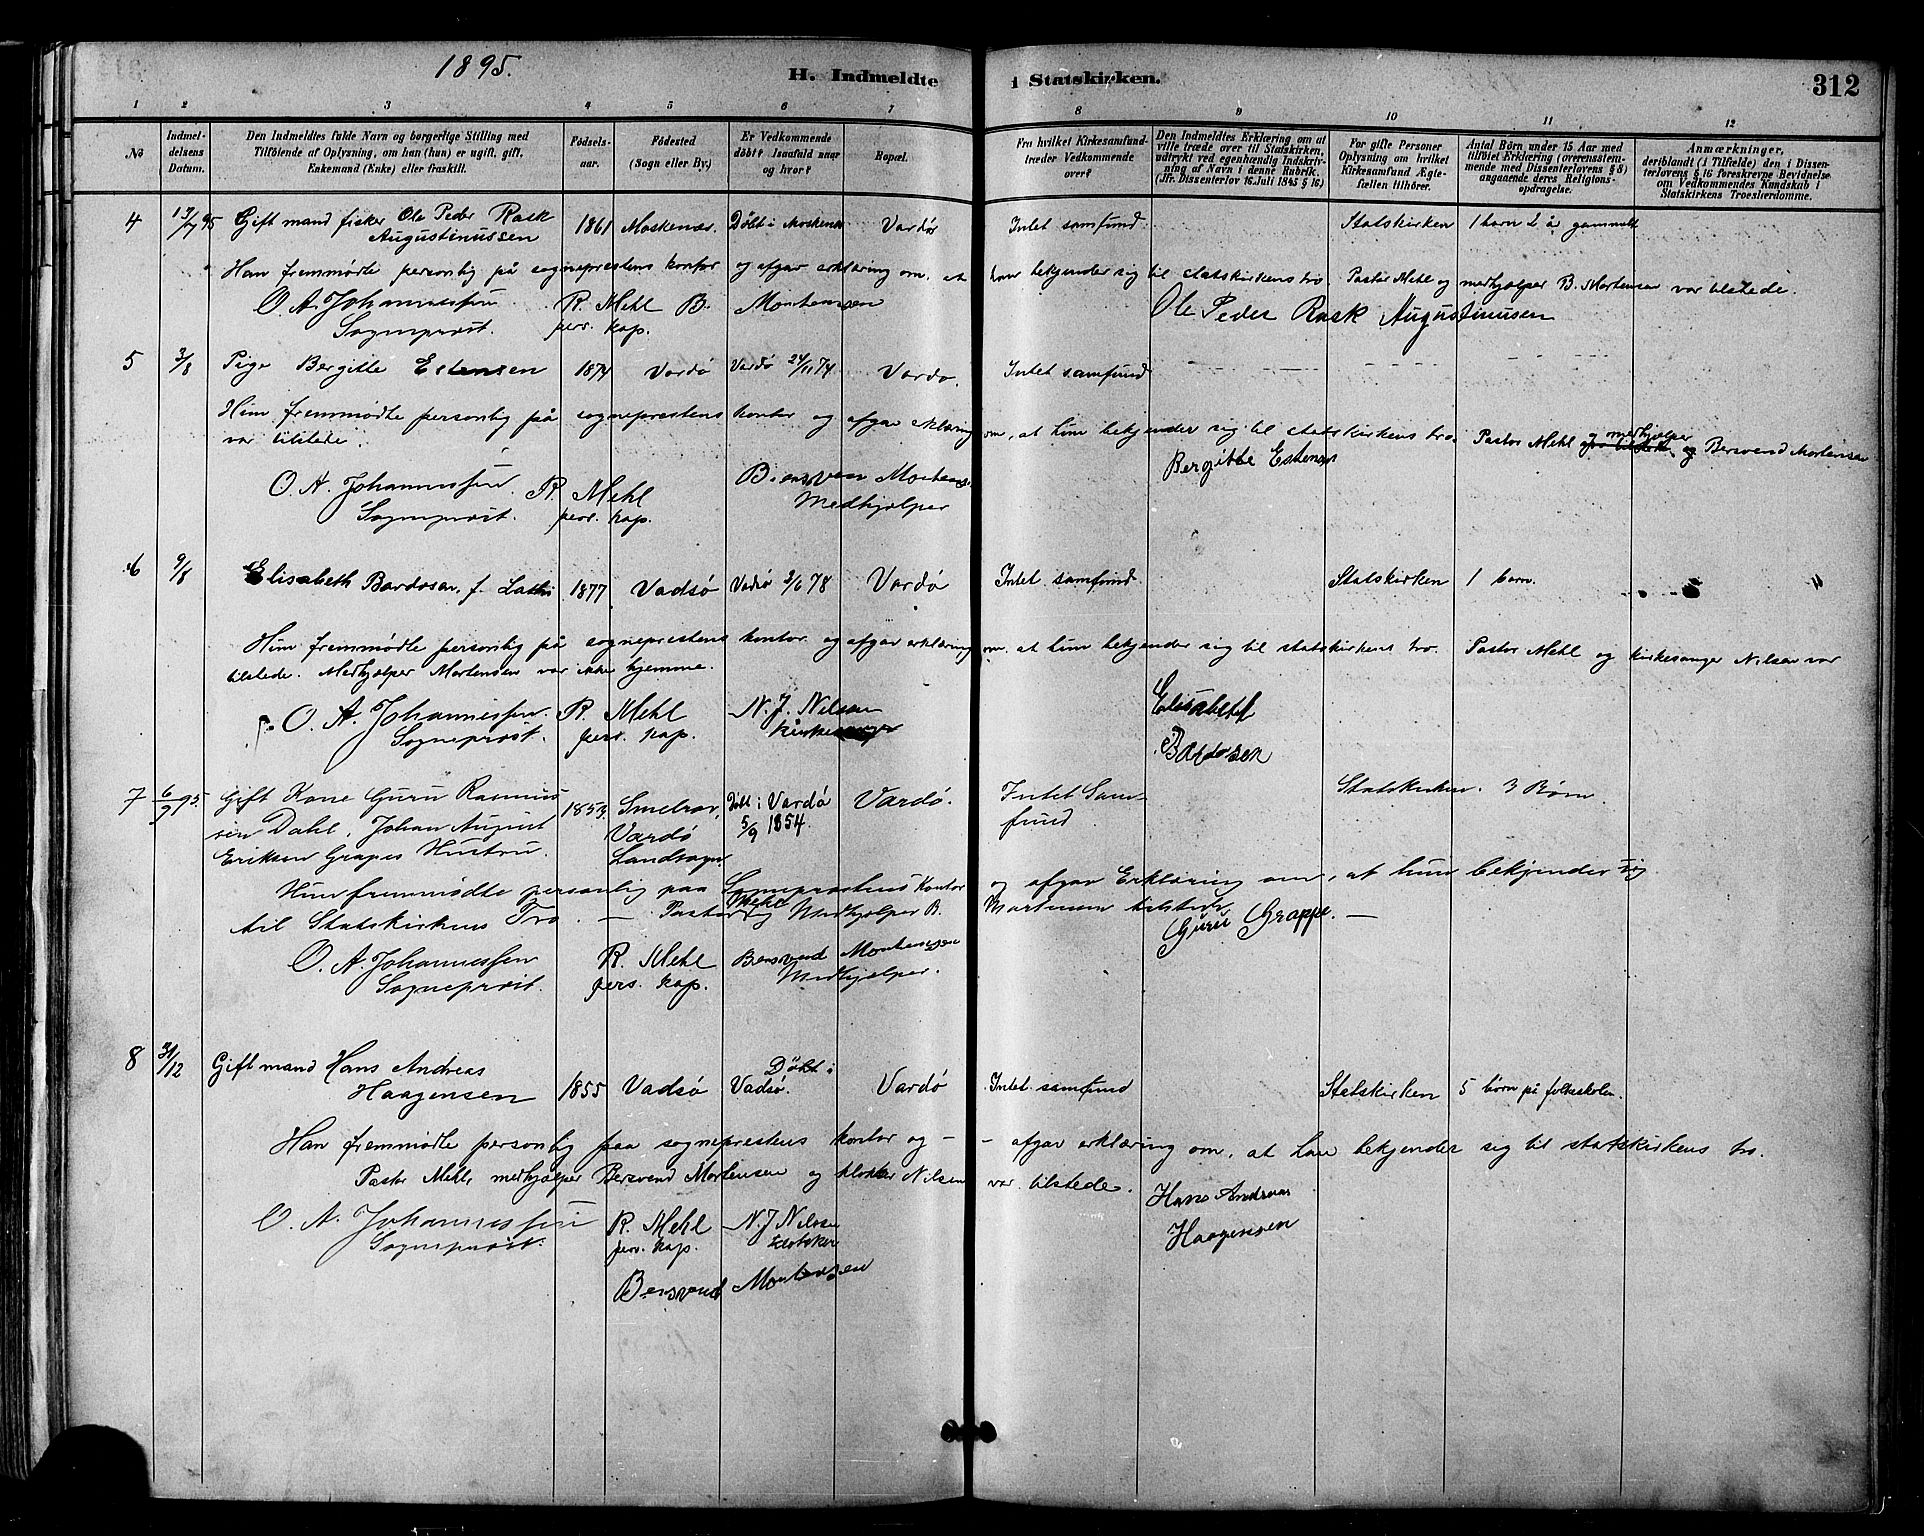 1895.
H. Indmeldte i Statskirken.
312
1 2 3 4 5 6 7 8 9 10 11 12
No
Indmeldelsens Datum.
Den Indmeldtes fulde Navn og borgerlige Stilling med
Tilföiende af Oplysning, om han (hun) er ugift, gift,
Enkemand (Enke) eller fraskilt.
Födselsaar.
Födested
(Sogn eller By.)
Er Vedkommende
döbt? Isaafald naar
og hvor?
Bopæl.
Fra hvilket Kirkesamfund
træder Vedkommende
over?
Den Indmeldtes Erklæring om at
ville træde over til Statskirken,
udtrykt ved egenhændig Indskrivning af Navn i denne Rubrik.
(Jfr. Dissenterlov 16. Juli 1845 § 16)
For gifte Personer
Oplysning om hvilket
Kirkesamfund Ægtefællen tilhörer.
Antal Börn under 15 Aar med
tilföiet Erklæring (overensstemmende med Dissenterlovens § 8)
angaaende deres Religionsopdragelse.
Anmærkninger,
deriblandt (i Tilfælde) den i Dissenterlovens § 16 foreskrevne Bevidnelse
om Vedkommendes Kundskab i
Statskirkens Troeslærdomme.
4 Gift mand fisker Ole Peder Rask 1861 Moskenær. Döbt i Moskenær Vardø Intet samfund Statskirken 1 barn 2 år gammelt
Augustinussen
Han fremmødte personlig på sogneprestens kontor og afgav erklæring om, at han bekjender sig til statskirkens tro. Pastor Mehl og medhjælper B. Mortensen var tilstede.
O. A. Johannessen R. Mehl B. Mortensen Ole Peder Rask Augustinusen
Sogneprest. pers. kap.
5 3/8 Pige Bergitte Estensen 1874 Vardø Vardø 24/11 74 Vardø. Intet samfund
Hun fremmødte personlig på sogneprestens kontor og afgav erklæring om, at hun bekjender sig til statskirkens tro. Pastor Mehl og medhjælper Bersvend Mortensen
var tilstede.
Bergitte Estensen
O. A. Johannessen. R. Mehl Bersven Mortensen
Sogneprest. pers. kap. Medhjælper
6 9/8 Elisabeth Bardosen, f. 1877 Vadsø Vadsø 2/6 78 Vardø Intet samfund Statskirken 1 barn.
Hun fremmødte personlig på sogneprestens kontor og afgav erklæring om, at hun bekjender sig til statskirkens tro. Pastor Mehl og kirkesanger Nilsen var
tilstede. Medhjælper Mortensen var ikke hjemme.
O. A. Johannessen. R. Mehl N. J. Nilsen Elisabeth
Sogneprest. pers. kap. kirkesanger Bardosen
7 6/9 95. Gift Kone Guru Rasmus- 1853. Smelror, Döbt i Vardø Vardø. Intet Sam- Statskirken. 3 Børn.
sen Dahl, Johan August Vardø 5/9 1854 fund
Eriksen Grapes Hustru. Landsogn
Hun fremmødte personlig paa Sogneprestens Kontor og afgav Erklæring om, at hun bekjender sig
til Statskirkens Tro. — Pastor Mehl og Medhjælper B. Mortensen tilstede. —
Guru Grappe.
O. A. Johannessen R. Mehl Bersvend Mortensen
Sogneprest. pers. kap. Medhjælper.
8 31/12 Gift mand Hans Andreas Döbt i
Haagensen 1855 Vadsø Vadsø. Vardø Intet samfund Statskirken 5 børn på folkeskolen.
Han fremmødte personlig paa sogneprestens kontor og - - afgav erklæring om, at han bekjender sig til statskirkens tro.
Pastor Mehl, medhjælper Bersvend Mortensen og klokker Nilsen var tilstede.
Hans Andreas
Haagensen
O. A. Johannessen R. Mehl N. J. Nilsen
Sogneprest. pers. kap. klokker
Bersvend Mortensen